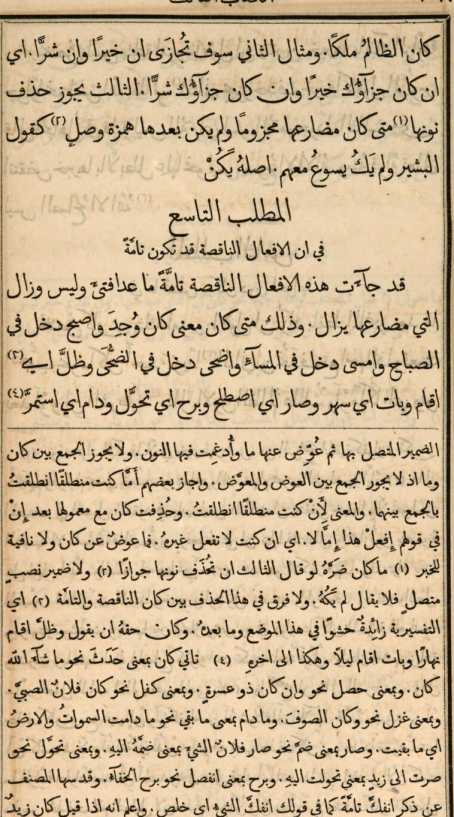 كان الظالمُ ملكًا. ومثال الثاني سوف تُجازَى ان خيرًا وان شرًّا. اي
ان كان جزآؤُك خيرًا وان كان جزآؤُك شرًّا. الثالث يجوز حذف
نونها (١) متى كان مضارعها مجزومًا ولم يكن بعدها همزة وصلٍ (٢) كقول
البشير ولم يَكُ يسوعُ معهم. اصلهُ يَكُنْ
المطلب التاسع
في ان الافعال الناقصة قد تكون تامَّةً
قد جآءَت هذه الافعال الناقصة تامَّةً ما عدا فتئَ وليس وزال
التي مضارعها يزال. وذلك متى كان معنى كان وُجِدَ واصبح دخل في
الصباح وامسى دخل في المسآءِ واضحى دخل في الضُحَى وظلَّ اي (٣)
اقام وبات اي سهر وصار اي اصطلح وبرح اي تحوَّل ودام اي استمرَّ (٤)
الضمير المتصل بها ثم عُوِّض عنها ما وأُدغمت فيها النون. ولا يجوز الجمع بين كان
وما اذ لا يجوز الجمع بين العوض والمعوَّض. واجاز بعضهم أَمَّا كنت منطلقًا انطلقتُ
بالجمع بينهما. والمعنى لِأَنْ كنت منطلقًا انطلقتُ. وحُذِفت كان مع معمولها بعد إِنْ
في قولهم إِفعلْ هذا إِمَّا لا. اي ان كنت لا تفعل غيرهُ. فما عوضٌ عن كان ولا نافية
للخبر (١) ما كان ضرَّهُ لو قال الثالث ان تحذَف نونها جوازًا (٢) ولا ضمير نصبٍ
متصلٍ فلا يقال لم يَكُهُ. ولا فرق في هذا الحذف بين كان الناقصة والتامَّة (٣) اي
التفسيرية زائدةٌ حشوًا في هذا الموضع وما بعدهُ. وكان حقهُ ان يقول وظلَّ اقام
نهارًا وبات اقام ليلًا وهكذا الى اخرهِ (٤) تاتي كان بمعنى حَدَثَ نحو ما شآءَ الله
كان. وبمعنى حصل نحو وان كان ذو عسرةٍ. وبمعنى كفل نحو كان فلانٌ الصبيَّ.
وبمعنى غزل نحو وكان الصوفَ. وما دام بمعنى ما بقي نحو ما دامت السمواتُ والارضُ
اي ما بقيت. وصار بمعنى ضمَّ نحو صار فلانٌ الشيَ بمعنى ضمَّهُ اليهِ. وبمعنى تحوَّل نحو
صرت الى زيدٍ بمعنى تحولت اليهِ. وبرح بمعنى انفصل نحو برح الخفآءُ. وقد سها المصنف
عن ذكر انفكَّ تامَّةً كما في قولك انفكَّ الشيءُ اي خلص. واعلم انه اذا قيل كان زيدٌ